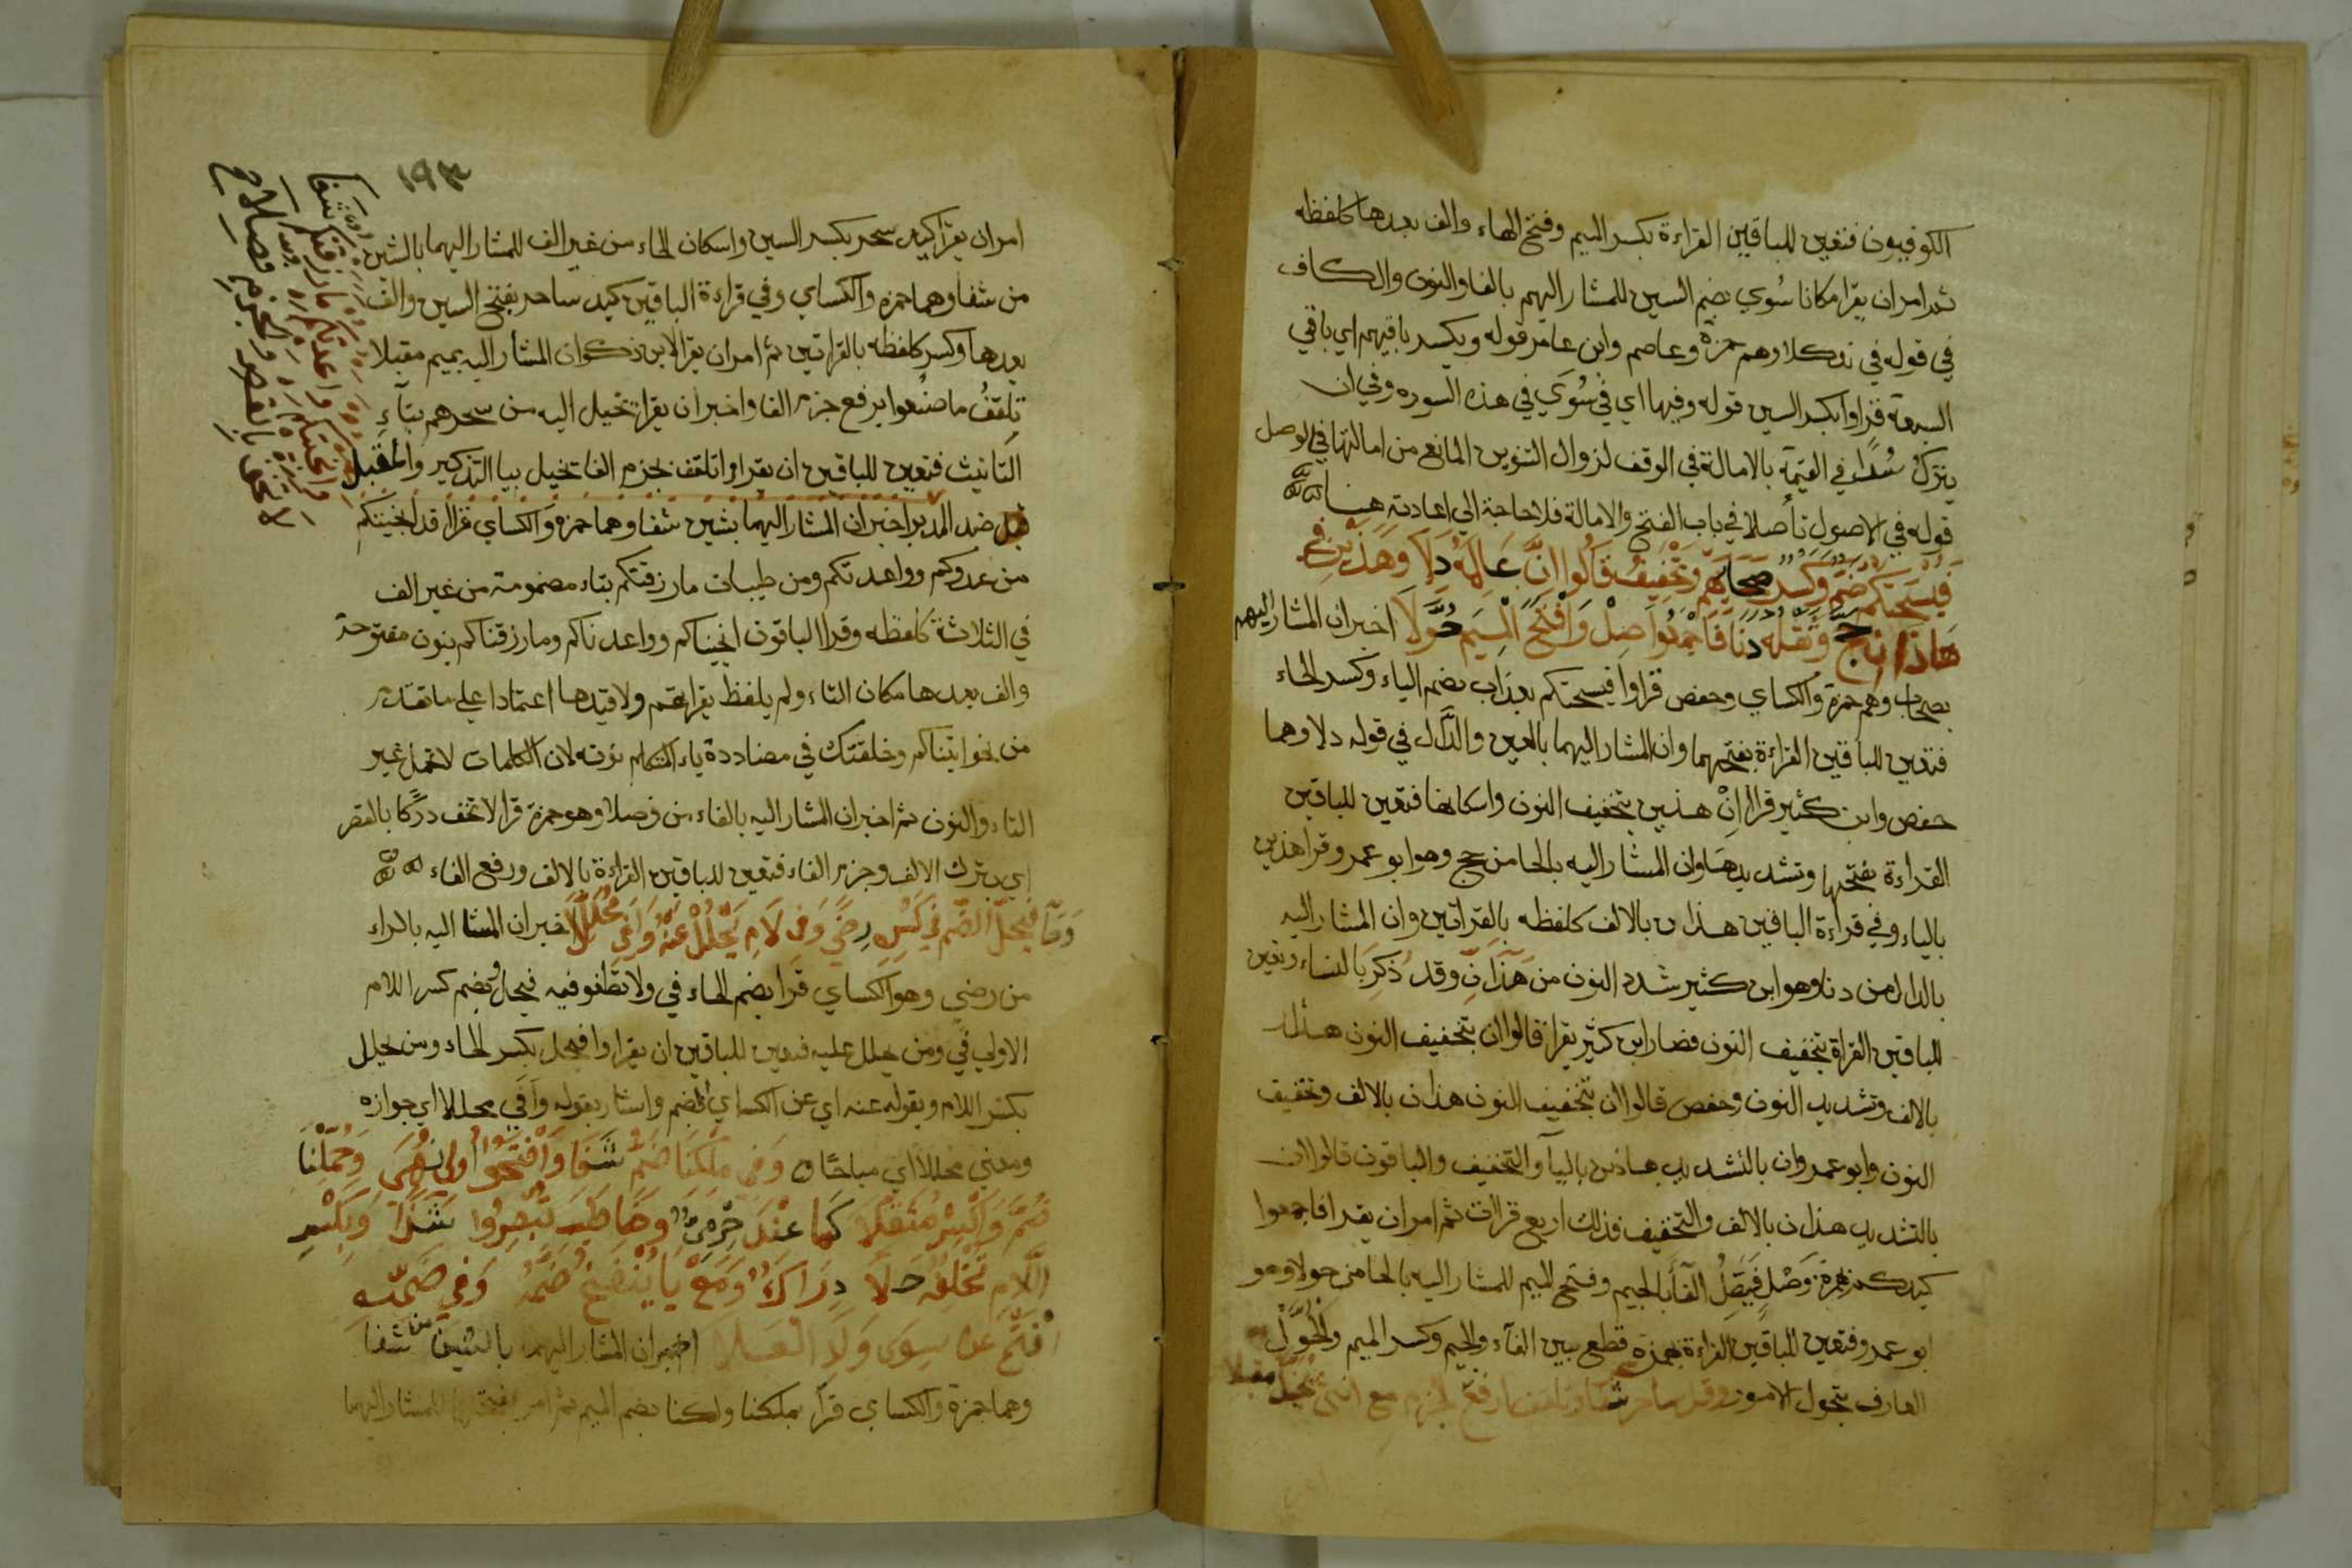 الكوفيون فتعين للباقين القراءة بكسر الميم وفتح الهاء والف بعدها كلفظه
ثم امران يقرا مكانا سُوي بضم السين للمشار اليهم بالفا والنون والكاف
في قوله في ندكلا وهم حمزة وعاصم وابن عامر قوله ويكسر باقيهم اي باقي
السبعة قراوا بكسر السين قوله وفيها اي في سُوَي في هذه السوره وفي ان
يترك سُدًا في القيمة بالامالة في الوقف لزوال التنوين المانع من امالتها في الوصل
قوله في الاصول تأصلا في باب الفتح والامالة فلا حاجة الي اعادته هنا
فَيُسحِتَكم ضَمٌ وكَسرٌ صحابهم وتخفيفُ قالوا انَّ عَالِمُهُ دَلَا وهَذَينِ في
هاذان حج وثقله دنا فاجمعوا صِلْ وافتَحِ الميمَ حُوَّلَا اخبر ان المشار اليهم
بصحاب وهم حمزة والكساي وحفص قراوا فيسحتكم بعذاب بضم الياء وكسر الحاء
فتعين للباقين القراءة بفتحهما وان المشار اليهما بالعين والدال في قوله دلا وهما
حفص وابن كثير قراا انْ هذين بتخفيف النون واسكانها فتعين للباقين
القراءة بفتحها وتشديدها وان المشار اليه بالحا من حج وهو ابو عمرو قرا هذين
بالياء وفي قراءة الباقين هذان بالالف كلفظه بالقراتين وان المشار اليه
بالدال من دنا وهو ابن كثير شدد النون من هذانّ وقد ذكر بالنساء وتعين
للباقين القراة بتخفيف النون فصار ابن كثير يقرا قالوا ان بتخفيف النون هذان
بالالف وتشديد النون وحفص قالوا ان بتخفيف النون هذان بالالف وتخفيف
النون وابو عمرو ان بالتشديد هاذين بالياء والتخفيف والباقون قالوا ان
بالتشديد هذان بالالف والتخفيف فذلك اربع قرات ثم امران يقرا فاجمعوا
كيدكم بهمزة وَصْلٍ فيتصل الفا بالجيم وفتح الميم للمشار اليه بالحا من حولا وهو
ابو عمرو فتعين للباقين القراءة بهمزة قطع بين الفاء والجيم وكسر الميم والحُوَّلْ
العارف بتحول الامور وقل ساحر سحر شفا وتلقف ارفع الجزم مع انثي تخيل مقبلا
١٩٣
امران يقرا كيد سحر بكسر السين واسكان الحاء من غير الف للمشار اليهما بالشين
من شفا وهما حمزه والكساي وفي قراءة الباقين كيد ساحر بفتح السين والف
بعدها وكسر كلفظه بالقراتين ثم امران يقرا لابن ذكوان المشار اليه بميم مقبلا
تلقفُ ما صنعوا برفع جزم الفا واخبر ان يقرا تخيل اليه من سحرهم بتاء
التانيث فتعين للباقين ان يقراوا تلقف بجزم الفا تخيل بيا التذكير والمقبل
ضد المدبر اخبر ان المشار اليهما بشين شفا وهما حمزه والكساي قراا قد انجيتكم
من عدوكم وواعدتكم ومن طيبات ما رزقتكم بتاء مضمومة من غير الف
في الثلاثة كلفظه وقرا الباقون انجيناكم وواعدناكم وما رزقناكم بنون مفتوحة
والف بعدها مكان التاء ولم يلفظ بقراءتهم ولا قيدها اعتمادا علي ما تقدم
من نحو اتيناكم وخلقتك في مضاددة ياء المتكلم نونه لان الكلمات لا تحمل غير
التاء والنون ثم اخبر ان المشار اليه بالفاء من فصلا وهو حمزة قرا لا تخف دركا بالقصر
اي بترك الالف وجزم الفاء فتعين للباقين القراءة بالالف ورفع الفاء
وَحَا فيَحِلَّ الضَّم في كَسرِه رِضيً وفي لامِ يَحلِلْ عنهُ وافَي مُحَلَّلَا اخبر ان المشا اليه بالراء
من رضي وهو الكساي قرا بضم الحاء في ولا تطغو فيه فيحل وضم كسر اللام
الاولي في ومن يحلل عليه فتعين للباقين ان يقراوا فيحل بكسر الحاء ومن يحلل
بكسر اللام وبقوله عنه اي عن الكساي الضم واشار بقوله وافي محللا اي جوازه
ومعني محللا اي مباحا وفي ملكنا ضَمٌّ شَفَا وافتَحُوا اُولِي نُهًي وحُمِّلنَا
ضُمَّ واكسِرْ مُثقَّلا كما عِندَ حِرْمِيٍّ وخاطَبَ تَبصُروا شَذًا وبكَسرِ
اللَّامِ تُخلِفَهُ حَلَا دِراكِ ومَعْ يَا يُنفَخُ ضَمُّهُ وفي ضَمِّه
افْتَحْ عن سِوَي ولَدِ العَلا اخبر ان المشار اليهما بالشين من شفا
وهما حمزة والكساي قرآ بملكنا ولكنا بضم الميم ثم امر بفتحها للمشار اليهما
شفا
لا تخف بالقصر والجزم فصلا صح